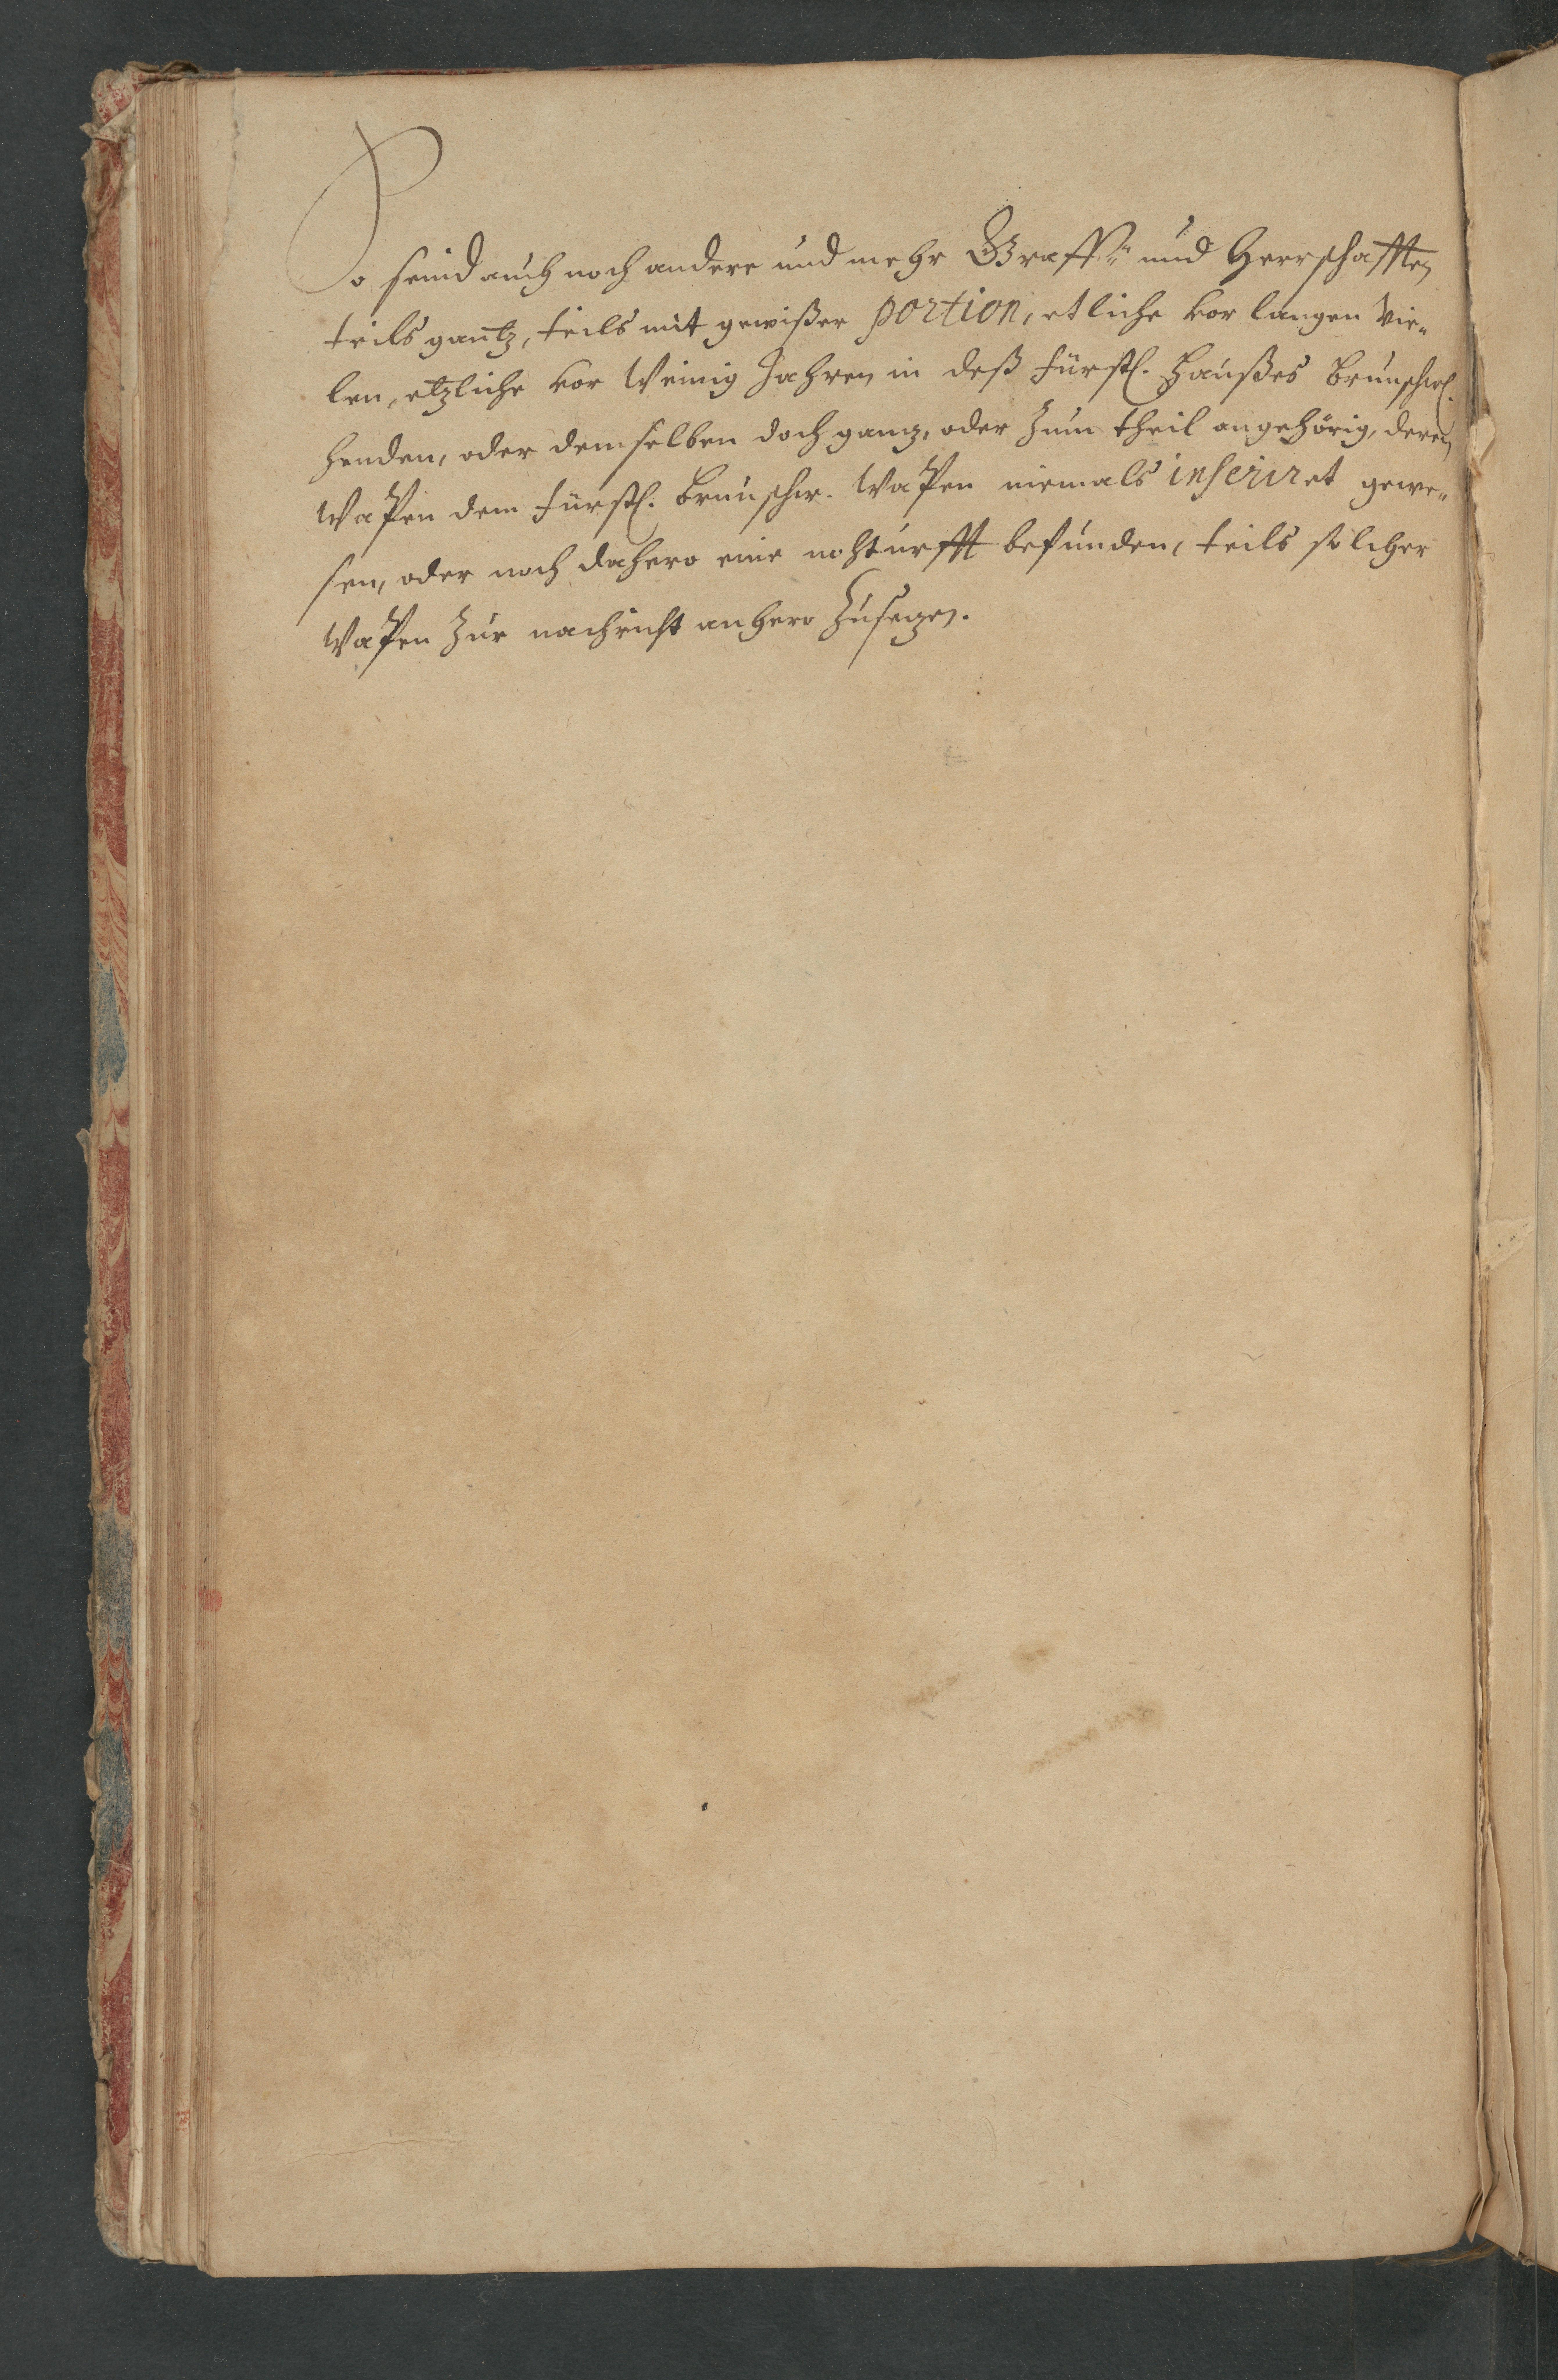 So seind auch noch andere und mehr Graff- und Herrschafften
teils gantz, teils mit gewißer portion, etliche vor langen vie-
len, etzliche vor Weinig Jahren, in deß Fürstl. Haußes Brunschwl.
henden, oder demselben doch ganz, oder zum theil angehörig, deren
Wapen dem Fürstl. Brunschw. Wapen niemals inseriret gewe-
sen, oder noch dahero eine nohturfft befunden, teils solcher
Wapen zur nachricht anhero zusezen.